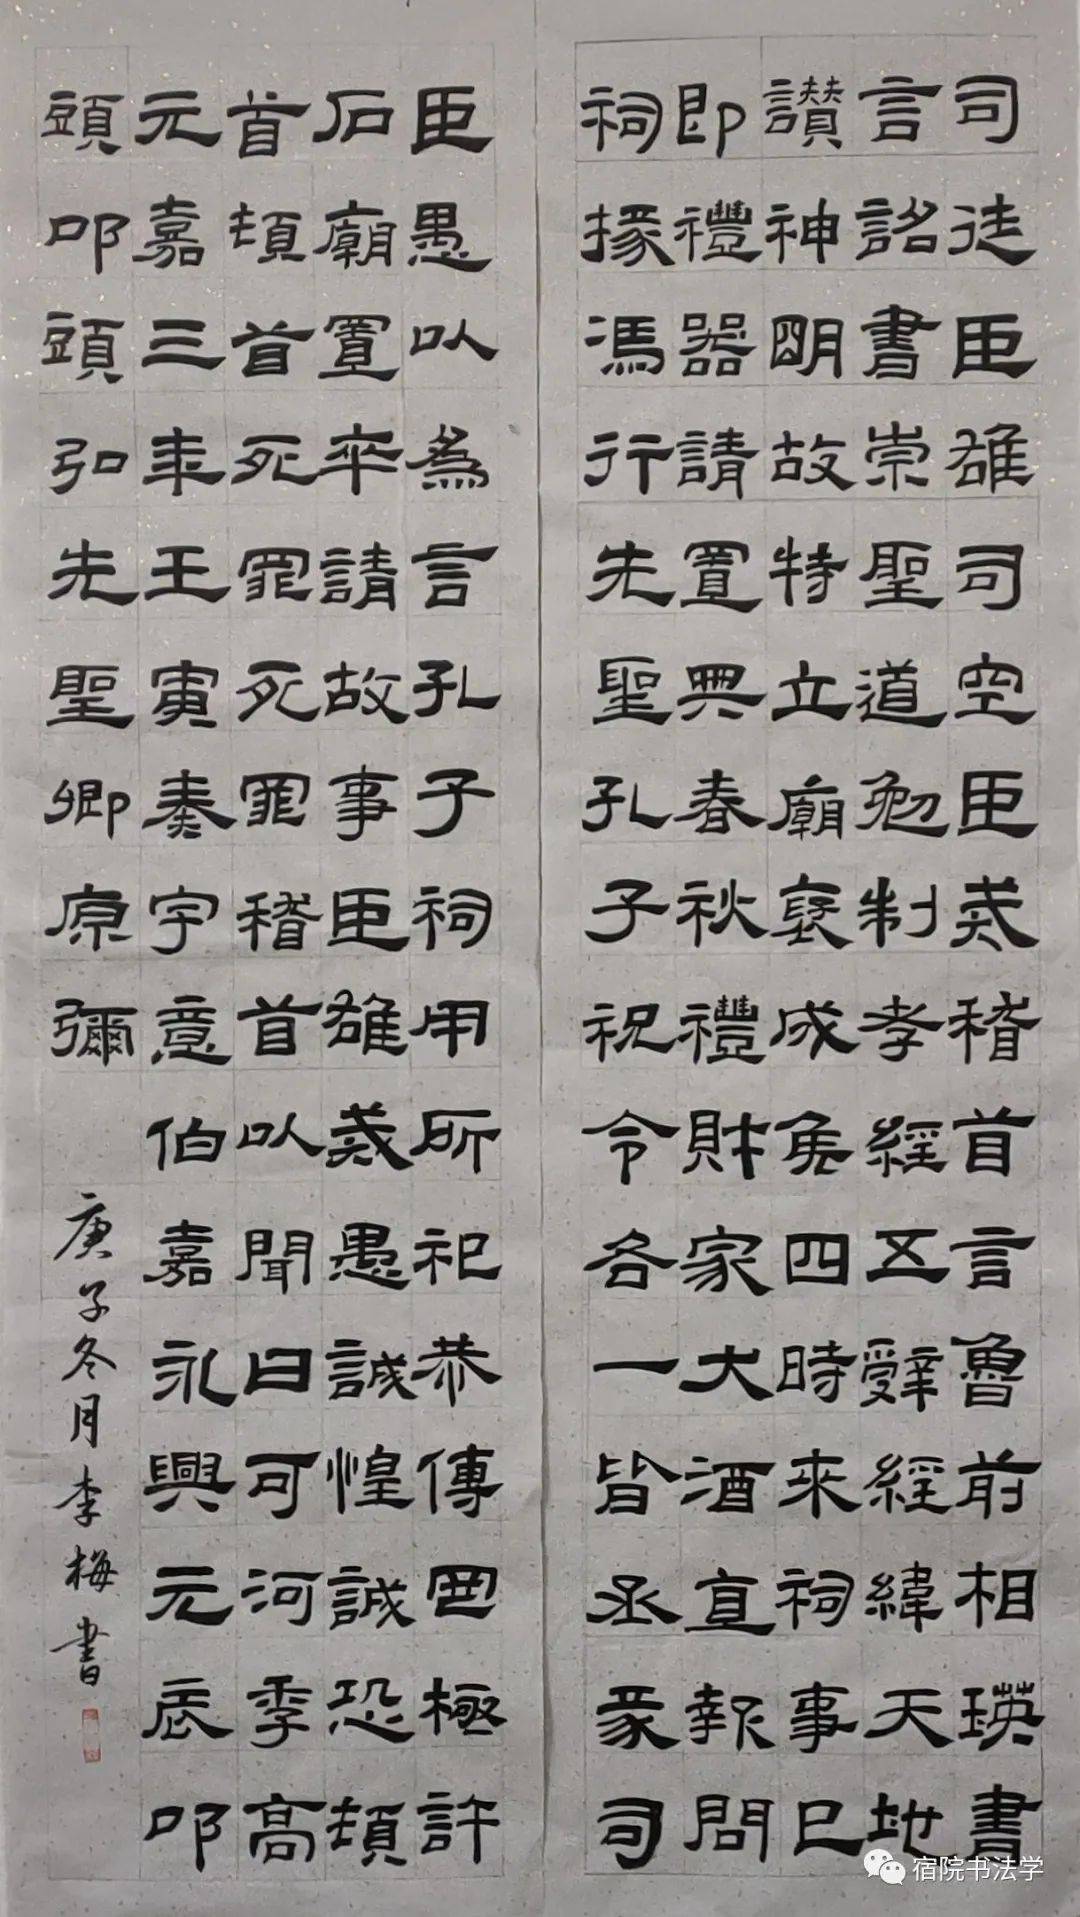 司徒臣雄司空臣戒稽首言魯前相瑛書
言詔書崇聖道勉制孝經五辤經緯天地
讃神明故特立廟褒成侯四時來祠事已
即禮器請置典春秋禮財家大酒直報問
祠掾馮行先聖孔子祝令各一皆丞司
臣愚以為言孔子祠用所祀恭傳罔極許
石廟置卒請故事臣雄戒愚誠惶誠恐頓
首頓首死罪死罪稽首以聞曰可河季高
元嘉三年王寅奏字意伯嘉永興元辰叩
頭叩頭弘先聖卿原彌
庚子冬月李梅書
宿院书法学